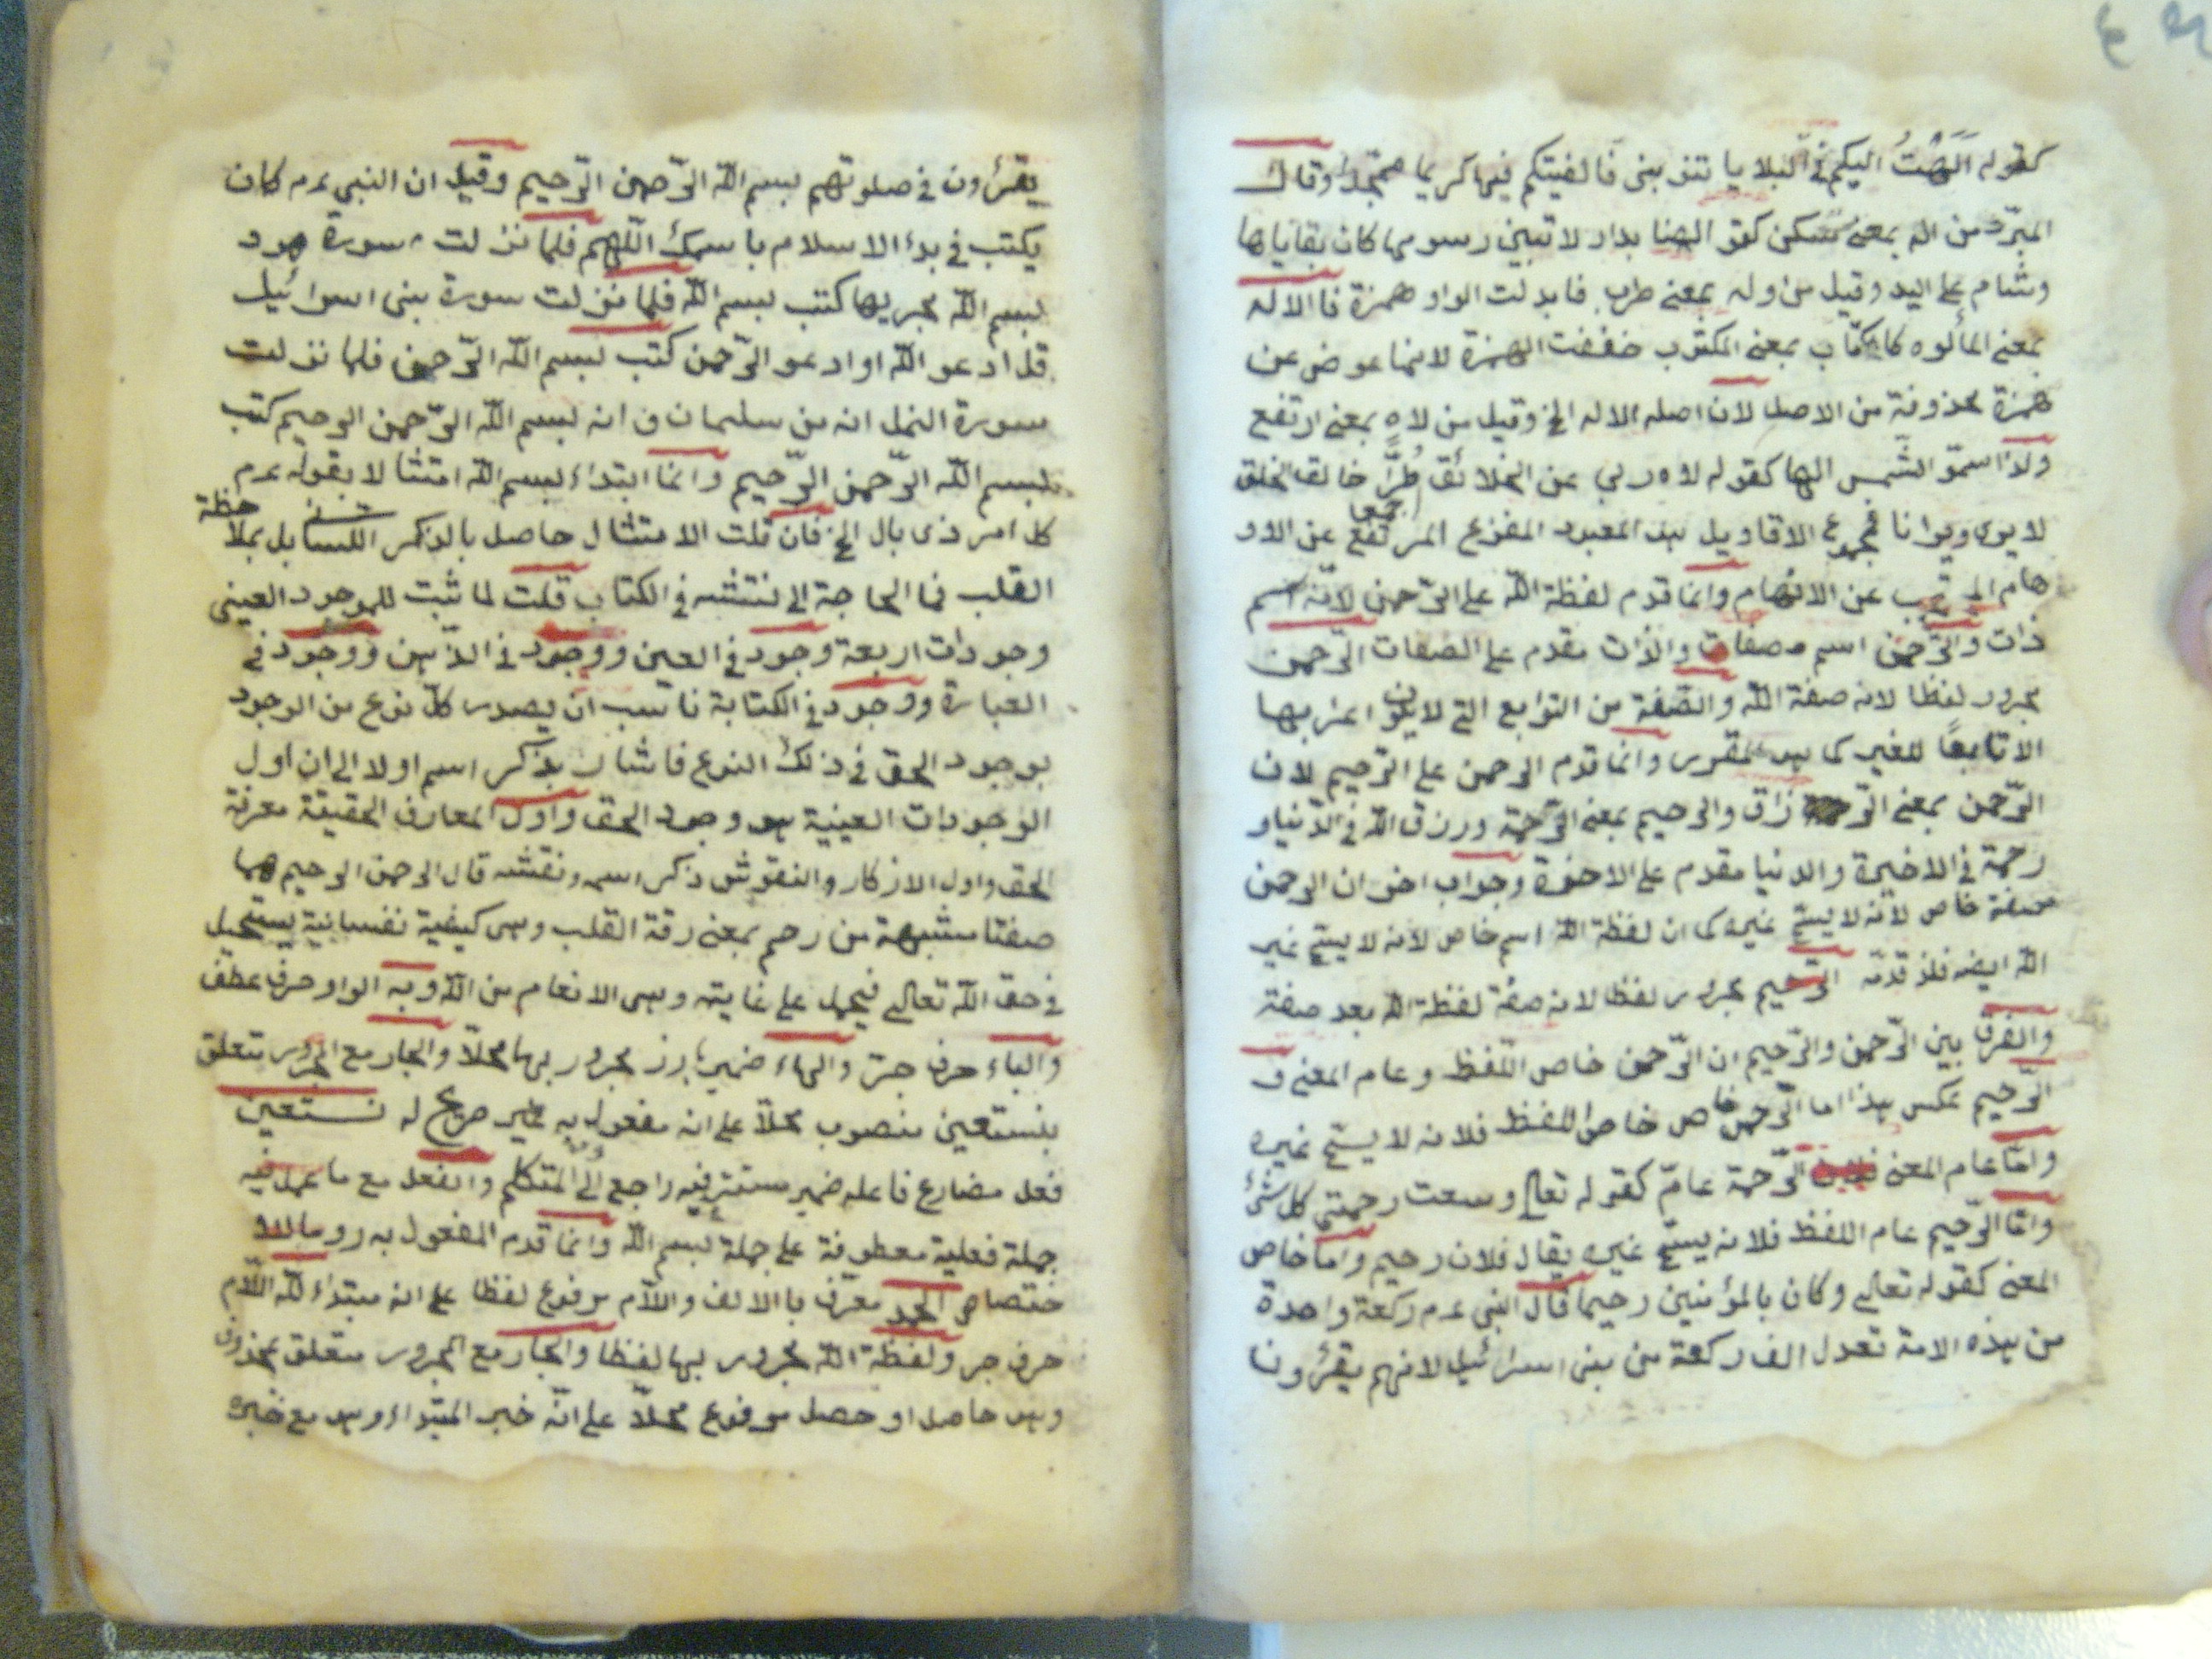 كقوله اَلَهْتُ اليكم في البلايا تنوبني فالفيتكم فيها كريما ممجدا وقال
المبرد من اله بمعنى تسكن كقو الهنا بدار لا تبين رسومها كان بقاياها
وشام على اليد وقيل من اوله بمعنى طرب فابدلت الواو همزة فالاله
بمعنى المألوه كالكتاب بمعنى المكتوب خففت الهمزة لانها عوض عن
همزة محذوفة من الاصل لان اصله الاله الخ وقيل من لاه بمعنى ارتفع
ولذا سمّو الشمس الها كقوله لاه ربي عن الخلائق طُرًّا خالق الخلق
لا يرى ويرانا فمجموع الاقاويل هو المعبود المفزع المرتفع عن الاو
هام المحتجب عن الافهام وانما قدم لفظة الله على الرّحمن لأنه اسم
ذات والرّحمن اسم صفات والذات مقدم على الصفات الرّحمن
مجرور لفظا لانه صفة الله والصّفة من التوابع التي لا يكون اعرابها
الا تابعًا للغير كما هو المقرر وانما قدم الرحمن على الرّحيم لان
الرّحمن بمعنى الرزاق والرحيم بمعنى الرّحمة ورزق الله في الدّنيا و
رحمة في الاخيرة والدنيا مقدم على الاخرة وجواب اخر ان الرحمن
صفة خاص لأنه لا يسمّى غيره كما ان لفظة الله اسم خاص لانه لا يسمى غير
الله ايضه فلذ قدمّه الرّحيم مجرور لفظا لانه صفة لفظة الله بعد صفة
والفرق بين الرّحمن والرّحيم ان الرّحمن خاص اللّفظ وعام المعنى و
الرّحيم عكس هذا اما الرّحمن خاص اللفظ فلانه لا يسمى غيره
وامّا عام المعنى الرّحمة عامّ كقوله تعالى وسعت رحمتي كل شئ
وامّا الرّحيم عام اللفظ فلانه يسمّى غيره يقال فلان رحيم واما خاص
المعنى كقوله تعالى وكان بالمؤمنين رحيما قال النبي عم ركعة واحدة
من هذه الامة تعدل الف ركعة من بني اسرائيل لانهم يقرؤن
يقرؤون في صلوتهم بسم الله الرّحمن الرّحيم وقيل ان النبي عم كان
يكتب في بدء الاسلام باسمك اللّهم فلما نزلت سورة هود
بسم الله مجريها كتب بسم الله فلما نزلت سورة بني اسرائيل
قل ادعو الله او ادعو الرّحمن كتب بسم الله الرّحمن فلما نزلت
سورة النمل انه من سليمان و انه بسم الله الرّحمن الرحيم كتب
بسم الله الرّحمن الرّحيم وانما ابتداء ببسم الله امتثالا بقوله عم
كل امر ذى بال الخ فان قلت الامتثال حاصل بالذكر اللساني بل بملاحظة
القلب فما الحاجة الى نقشه في الكتاب قلت لما ثبت للموجود العيني
وجودات اربعة وجود في العين ووجود في الذهن ووجود في
العبارة ووجود في الكتابة ناسب ان يصدر كلّ نوع من الوجود
بوجود الحق في ذلك النوع فاشار بذكر اسم اولا الى ان اول
الوجودات العينية هو وجود الحق واول المعارف الحقيقة معرفة
الحق واول الاذكار والنقوش ذكر اسمه ونقشه قال الرحمن الرحيم هما
صفتا مشبهة من رحم بمعنى رقة القلب وهى كيفية نفسانية يستحيل
في حق الله تعالى فيحمل على غايته وهى الانعام من الله وبه الواو حرف عطف
والباء حرف جرّ والهاء ضمير بارز مجرور بها محلّا والجار مع المجرور متعلق
بنستعين منصوب محلّا على انه مفعول به غير صريح له نستعين
فعل مضارع فاعله ضمير مستتر فيه راجع الى المتكلم والفعل مع ما عمل فيه
جملة فعلية معطوفة على جملة بسم الله وانما قدم المفعول به روما للا
ختصاص الحمد معرّف بالالف واللّام مرفوع لفظا على انه مبتداء لله اللّام
حرف جر ولفظة الله مجرور بها لفظا والجار مع المجرور متعلق بمحذوف
وهو حاصل او حصل مرفوع محلّا على انّه خبر المبتداء وهو مع خبره